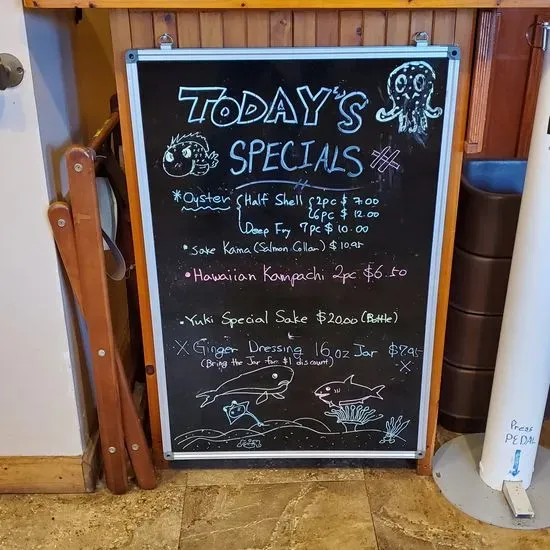 TODAY'S
SPECIALS
*Oyster { Half Shell { 2pc $ 7.00
6pc $ 12.00
Deep Fry 7pc $ 10.00
• Sake Kama (Salmon Collar) $10.95
• Hawaiian Kampachi 2pc $6.50
• Yuki Special Sake $20.00 (Bottle)
X Ginger Dressing 16oz Jar $7.95 X
(Bring the Jar for $1 discount)
Press
PEDAL